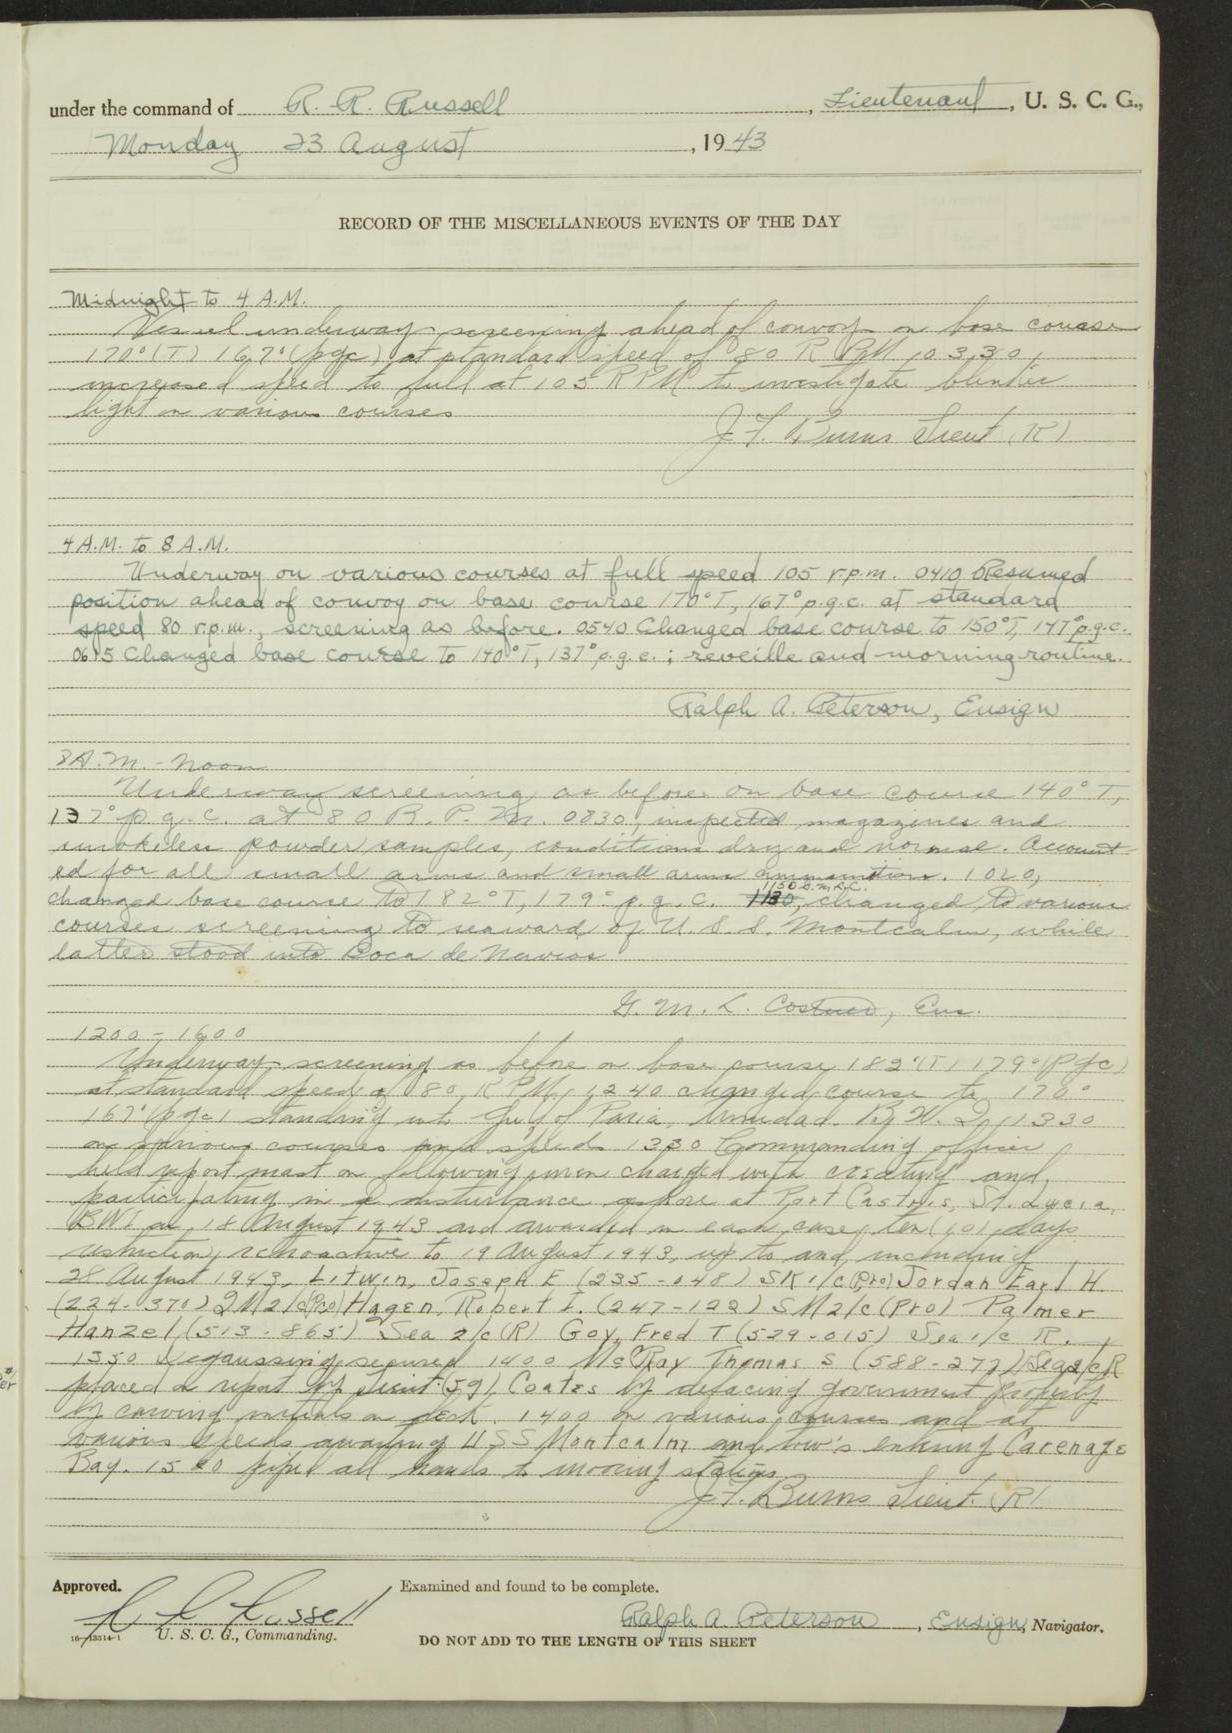 under the command of R. R. Russell, Lieutenant, U. S. C. G.,
Monday 23 August, 1943
RECORD OF THE MISCELLANEOUS EVENTS OF THE DAY
Midnight to 4 A.M.
Vessel underway screening ahead of convoy on base course
170°(T) 167°(pgc) at standard speed of 80 R PM, 0330,
increased speed to full at 105 RPM to investigate
light on various courses
J. F. Burns Lieut (R)
4 A.M. to 8 A.M.
Underway on various courses at full speed 105 r.p.m. 0410 Resumed
position ahead of convoy on base course 170°T, 167° p.g.c. at standard
speed 80 r.p.m., screening as before. 0540 Changed base course to 150°T, 147° p.g.c.
0615 Changed base course to 140°T, 137° p.g.c.; reveille and morning routine.
Ralph A. Peterson, Ensign
8 A.M. - Noon
Underway screening as before on base course 140° T,
137° p.g.c. at 80 R.P.M. 0830, inspected magazines and
smokeless powder samples, conditions dry and normal. Account-
ed for all small arms and small arms ammunition. 1020,
1150 G.M.L.C.
changed base course to 182°T, 179° p.g.c. 1130, changed to various
courses screening to seaward of U. S. S. Montcalm, while
latter stood into Boca de Navios
G. M. L. Ens.
1200 - 1600
Underway screening as before on base course 182°(T) 179°(pgc)
at standard speed of 80 RPM, 1240 changed course to 170°
167°(pgc) standing into Gulf of Paria, Trinidad B.W.I. 1330
on various courses and speeds 1330 Commanding officer
held report mast on following men charged with creating and
participating in a disturbance ashore at Port Castries, St. Lucia,
BWI on 18 August 1943 and awarded in each case, ten (10) days
restriction, retroactive to 19 August 1943, up to and including
28 August 1943, Litwin, Joseph E (235-048) SK 1/c (Pro) Jordan Earl H.
(224-370) GM 2/c (Pro) Hagen, Robert I. (247-122) SM 2/c (Pro) Palmer
Hanzel (513-865) Sea 2/c (R) Goy, Fred T (529-015) Sea 1/c R.
1350 Degaussing secured 1400 McCray Thomas S (588-277) Sea 2/c R
placed on report by Lieut. (jg) Coates for defacing government property
by carving initials on desk. 1400 on various courses and at
various speeds awaiting USS Montcalm and tow's entering Carenage
Bay. piped all hands to mooring stations
J. F. Burns Lieut. (R)
Approved.
R R Russell
U. S. C. G., Commanding.
16-13514-1
Examined and found to be complete.
Ralph A. Peterson, Ensign, Navigator.
DO NOT ADD TO THE LENGTH OF THIS SHEET